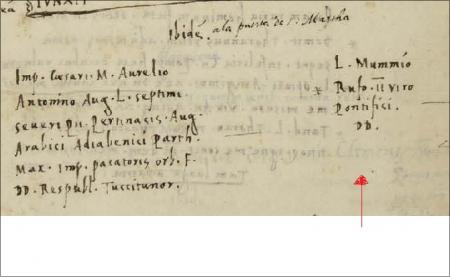 IVNXI
Ibidē. a la puerta de S. Marina
Imp. Cæsari. M. Aurelio
Antonino Aug. L. septimi
severi Pii. Pertinacis. Aug.
Arabici Adiabenici Parth.
Max. Imp. pacatoris orb. F.
DD. Respubl. Tuccitanor.
L. Mummio
Rufo. II viro
Pontifici.
DD.